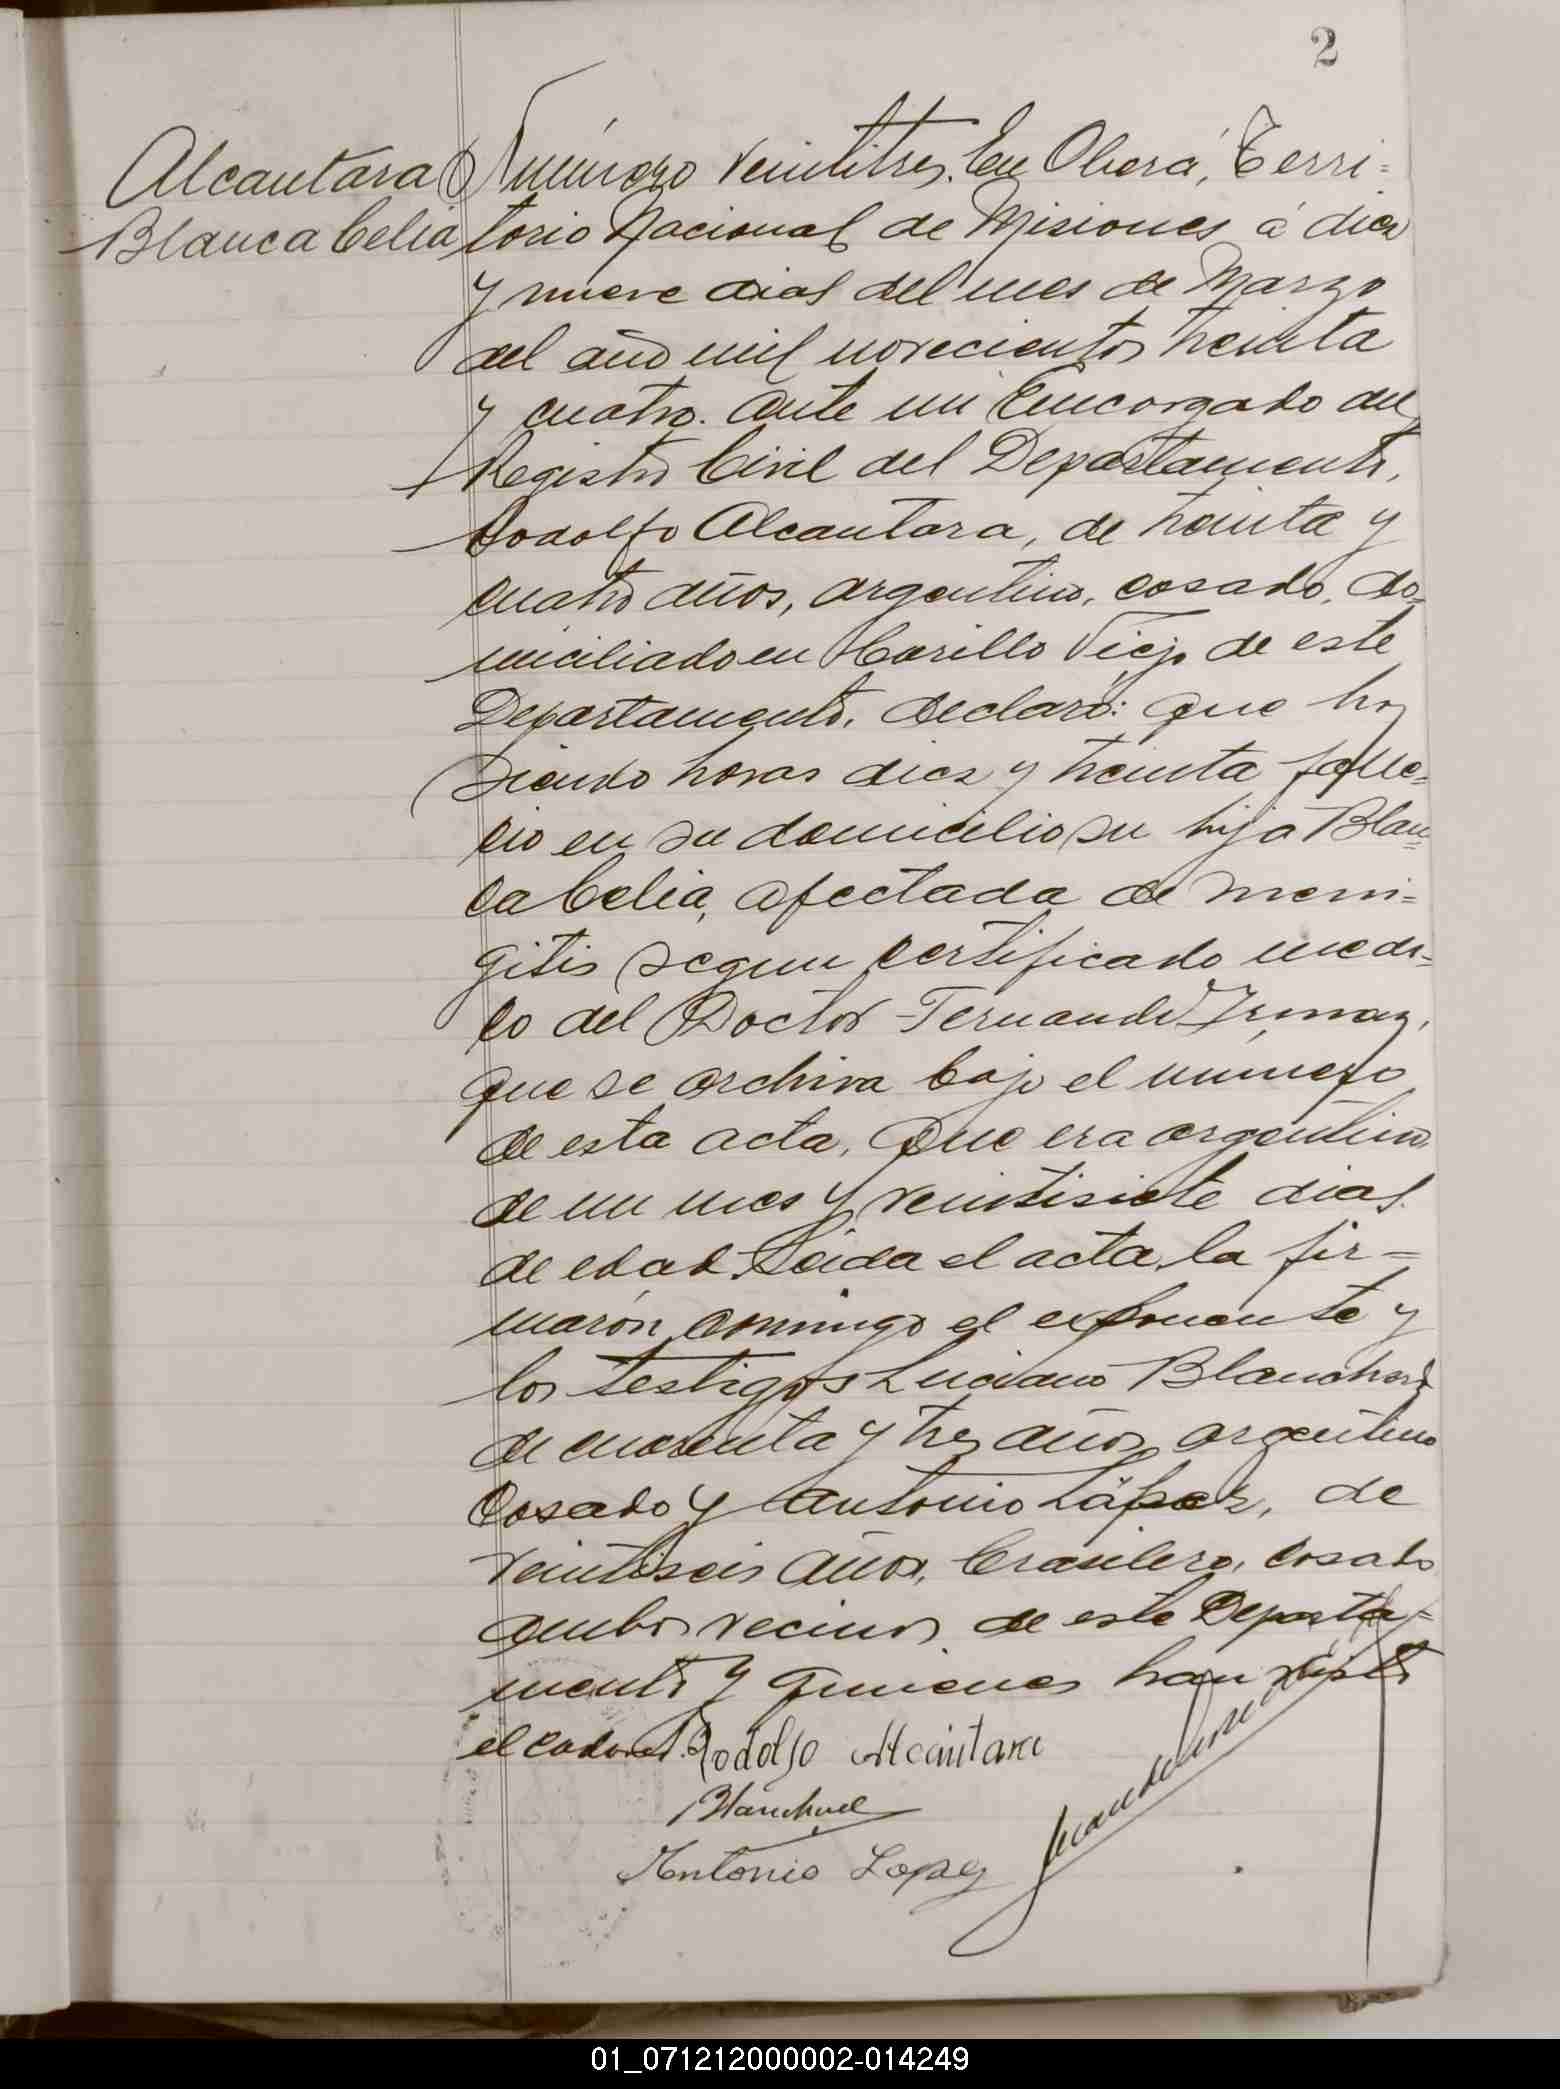 2
Alcantara
Blanca Celia
Número veintitres. En Oberá, Terri=
torio Nacional de Misiones á diez
y nueve dias del mes de Marzo
del año mil novecientos treinta
y cuatro. Ante mi Encargado del
Registro Civil del Departamento,
Rodolfo Alcantara, de treinta y
cuatro años, argentino, casado, do=
miciliado en Cerillo Viejo de este
Departamento, declaró: que hoy
siendo horas diez y treinta falle=
cio en su domicilio su hija Blan=
ca Celia, afectada de meni=
gitis segun certificado medi=
co del Doctor Fernando
que se archiva bajo el número
de esta acta. Que era argentina
de un mes y veintisiete dias
de edad. Leida el acta, la fir=
marón conmigo el exponente y
los testigos Luciano Blanchard
de cuarenta y tres años, argentino
casado y Antonio López, de
veintiseis años, brasilero, casado
ambos vecinos de este Departa=
mento y quienes han visto
el cadaver. Rodolfo Alcantara
Blanchard
Antonio Lopez
01_071212000002-014249